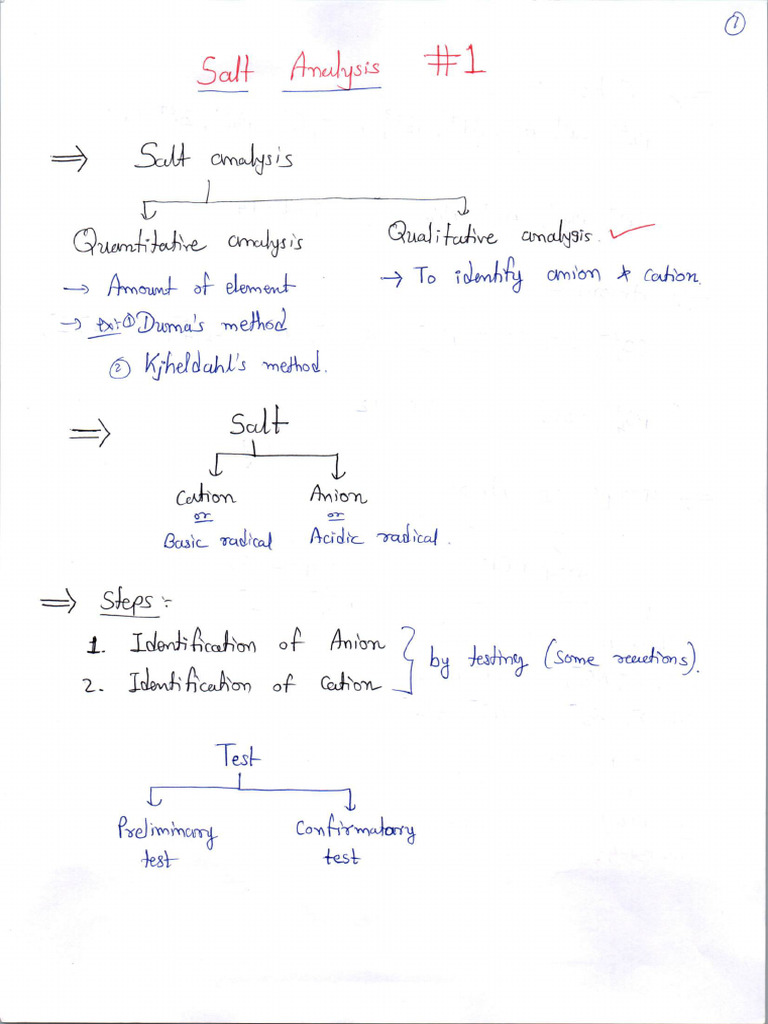 1
Salt Analysis #1
⇒ Salt analysis
Quantitative analysis
Qualitative analysis. ✓
→ Amount of element
→ To identify anion & cation.
→ ex:- ① Duma's method
② Kjheldahl's method.
⇒ Salt
Cation Anion
or or
Basic radical Acidic radical.
⇒ Steps:-
1. Identification of Anion
2. Identification of Cation
by testing (some reactions).
Test
Preliminary Confirmatory
test test